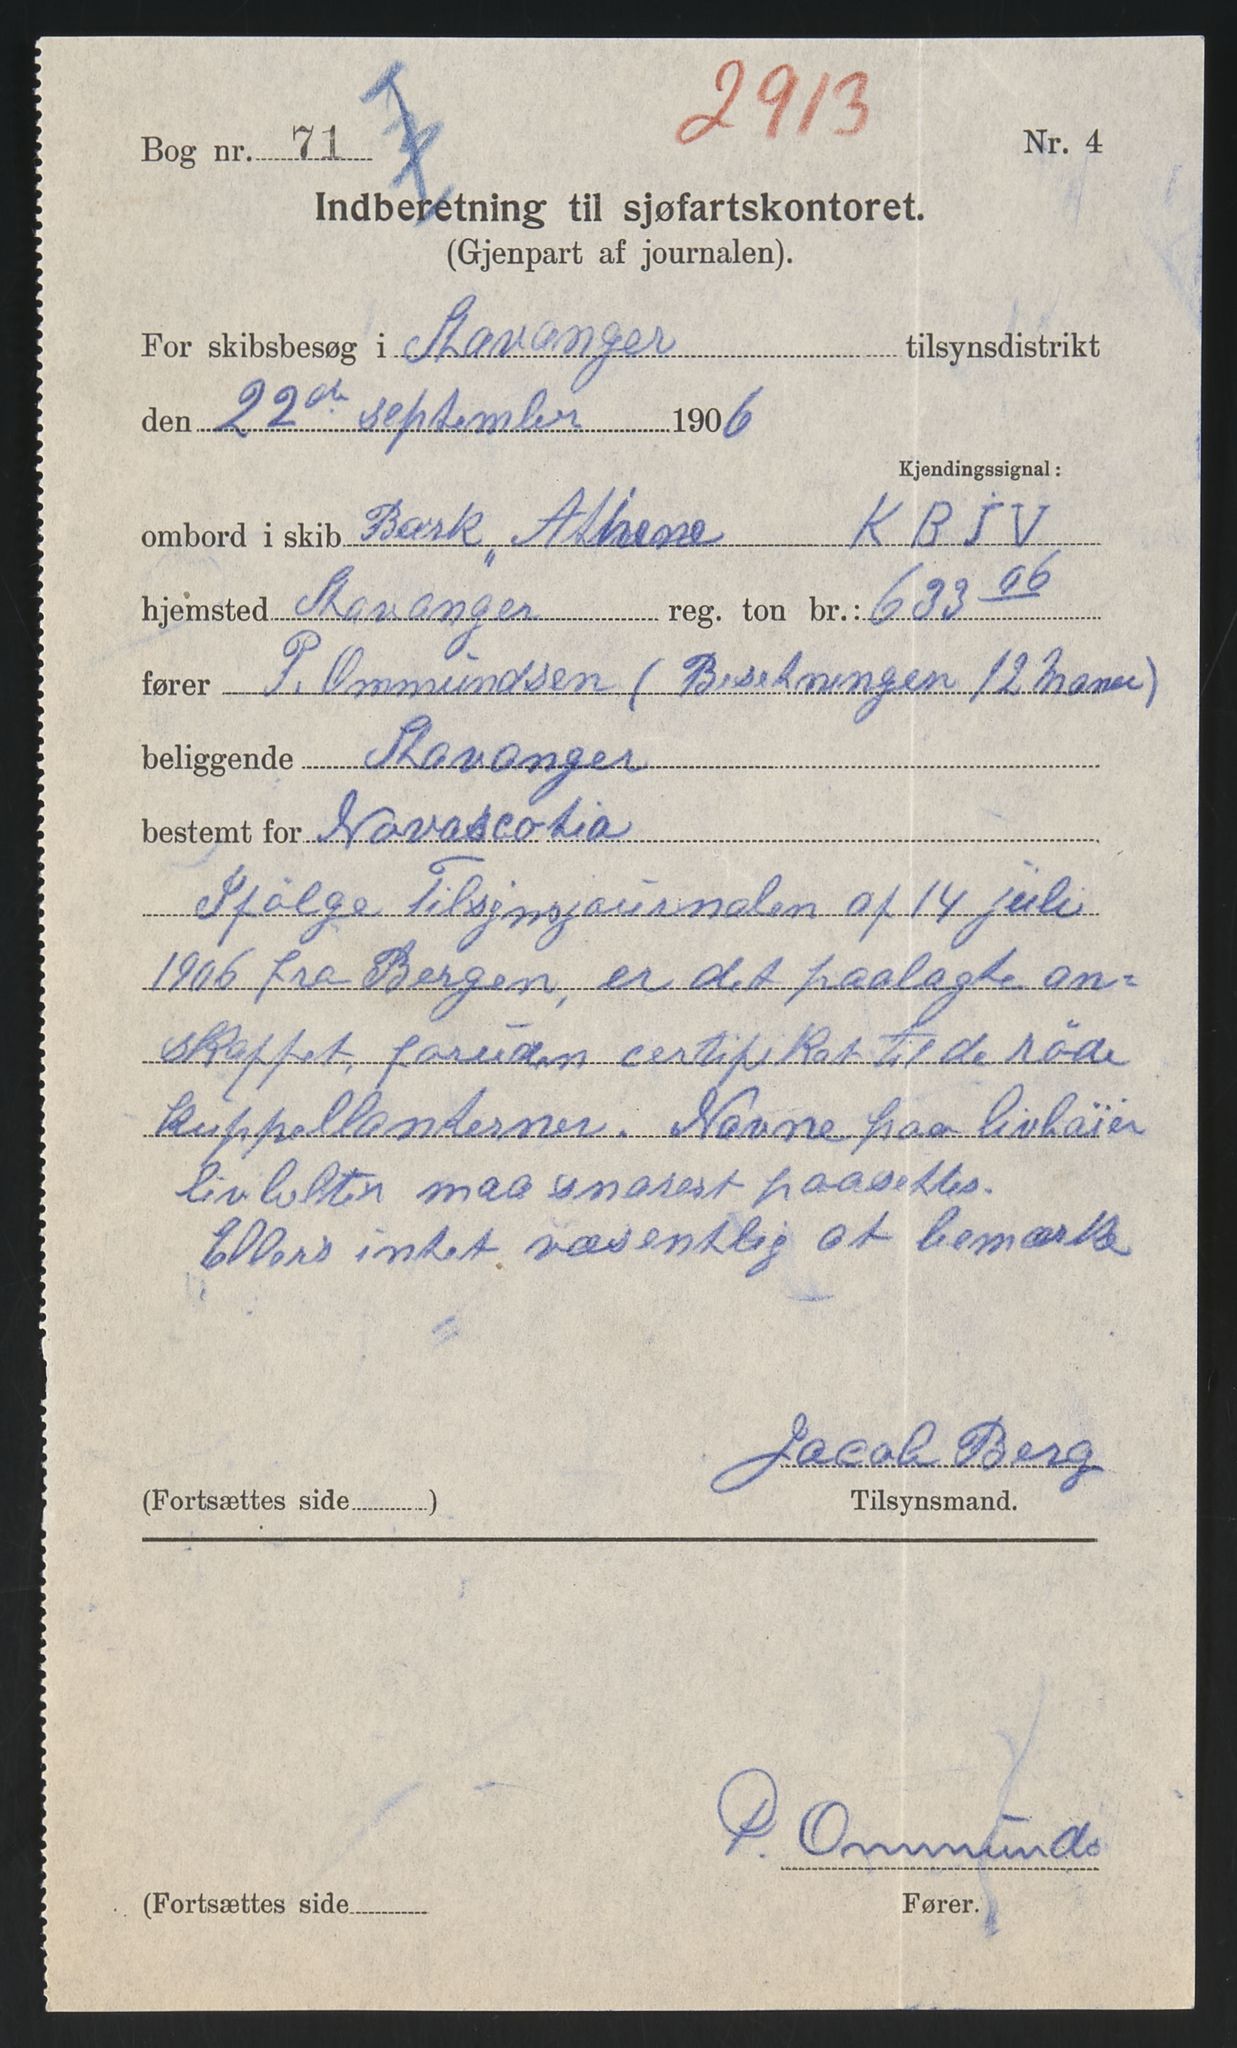 2913
Bog nr. 71
Nr. 4
Indberetning til sjøfartskontoret.
(Gjenpart af journalen).
For skibsbesøg i Stavanger tilsynsdistrikt
den 22de september 1906
Kjendingssignal:
ombord i skib Bark „Athene K B J V
hjemsted Stavanger reg. ton br.: 633 06
fører P. Ommundsen (Besetningen 12 Mand)
beliggende Stavanger
bestemt for Novascotia
Ifølge Tilsynsjournalen af 14 juli
1906 fra Bergen, er det paalagte an=
skaffet, foruden certifikat til de røde
kuppellanterner. Navne paa livbøier
livbelter maa snarest paasettes.
Ellers intet væsentlig at bemærke
Jacob Berg
(Fortsættes side ) Tilsynsmand.
P. Ommunds
(Fortsættes side Fører.